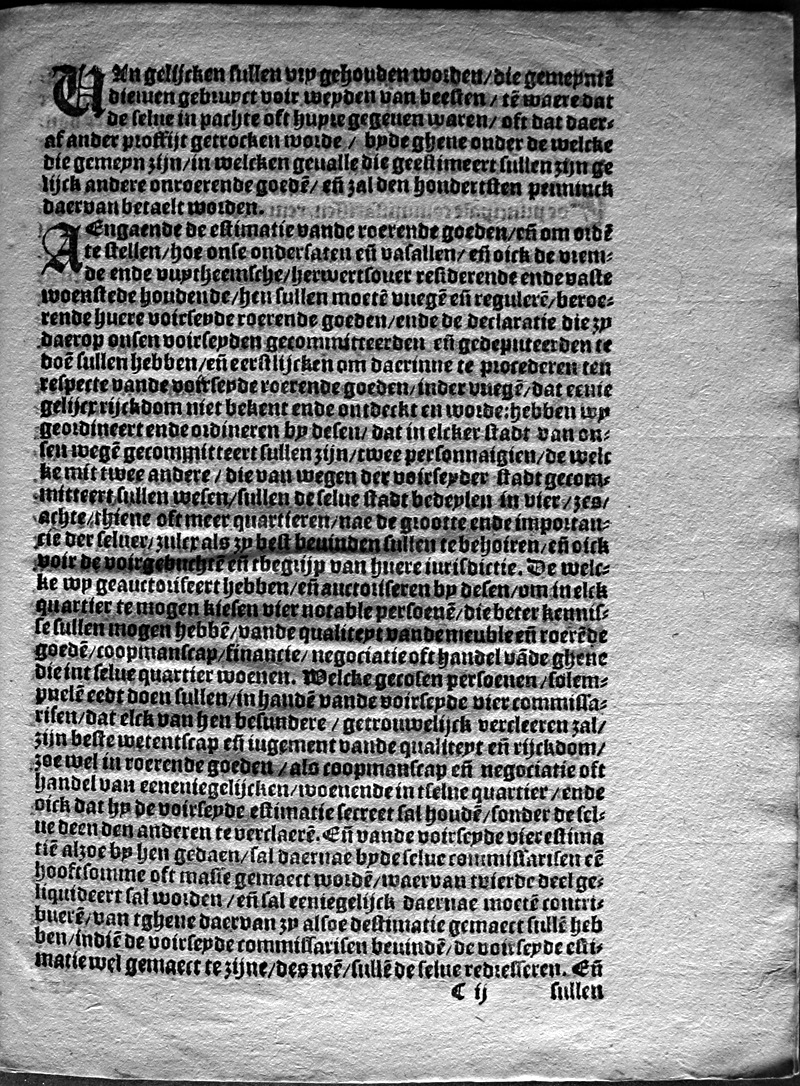 VAn gelijcken sullen vry gehouden worden/die gemeynte
die men gebruyct voir weyden van beesten / tē waere dat
de selue in pachte oft huyre gegeuen waren/ oft dat daer⸗
af ander proffijt getrocken worde / byde ghene onder de welcke
die gemeyn zijn/in welcken geualle die geestimeert sullen zijn ge
lijck andere onroerende goedē/ eñ zal den hondertsten penninck
daer van betaelt worden.
AEngaende de estimatie vande roerende goeden/eñ om ordē
te stellen/hoe onse ondersaten eñ vasallen/ eñ oick de vrem⸗
de ende vuytheemsche/herwertsouer residerende ende vaste
woenstede houdende/hen sullen moetē vuegē eñ regulerē/beroe⸗
rende huere voirseyde roerende goeden/ende de declaratie die zy
daerop onsen voirseyden gecommitteerden eñ gedeputeerden te
doē sullen hebben/eñ eerst lijcken om daerinne te procederen ten
respecte vande voirseyde roerende goeden/inder vuegē/dat eenie
gelijcx rijckdom niet bekent ende ontdeckt en worde:hebben wy
geordineert ende ordineren by desen/ dat in elcker stadt van on⸗
sen wegē gecommitteert sullen zijn/twee personnaigien/de welc
ke mit twee andere / die van wegen der voirseyder stadt gecom⸗
mitteert sullen wesen/sullen de selue stadt bedeylen in vier/zes/
achte/thiene oft meer quartieren/nae de grootte ende importan⸗
tie der seluer/zulcx als zy best beuinden sullen te behoiren/eñ oick
voir de voirgebuchtē eñ tbegrijp van huere iurisdictie. De welc⸗
ke wy geauctoriseert hebben/eñ auctoriseren by desen/om in elck
quartier te mogen kiesen vier notable persoenē/die beter kennis⸗
se sullen mogen hebbē/vande qualiteyt vande meuble eñ roerēde
goedē/coopmanscap/financie/negociatie oft handel vāde ghene
die int selue quartier woenen. Welcke gecosen persoenen/solem⸗
pnelē eedt doen sullen/in handē vande voirseyde vier commissa⸗
risen/dat elck van hen besundere / getrouwelijck vercleeren zal/
zijn beste wetentscap eñ iugement vande qualiteyt eñ rijckdom/
zoe wel in roerende goeden /als coopmanscap eñ negociatie oft
handel van eeneniegelijcken/woenende int selue quartier/ende
oick dat hy de voirseyde estimatie secreet sal houdē/sonder de sel⸗
ue deen den anderen te verclaerē. Eñ vande voirseyde vier estima
tiē alzoe by hen gedaen/sal daernae byde selue commissarisen eē
hooftsomme oft masse gemaect wordē/waer van tvierde deel ge⸗
liquideert sal worden / eñ sal eeniegelijck daernae moetē contri⸗
buerē/van tghene daervan zy alsoe destimatie gemaect sullē heb
ben/indiē de voirseyde commissarisen beuindē/de voirseyde esti⸗
matie wel gemaect te zijne/des neē/sullē de selue redresseren. Eñ
C ij sullen